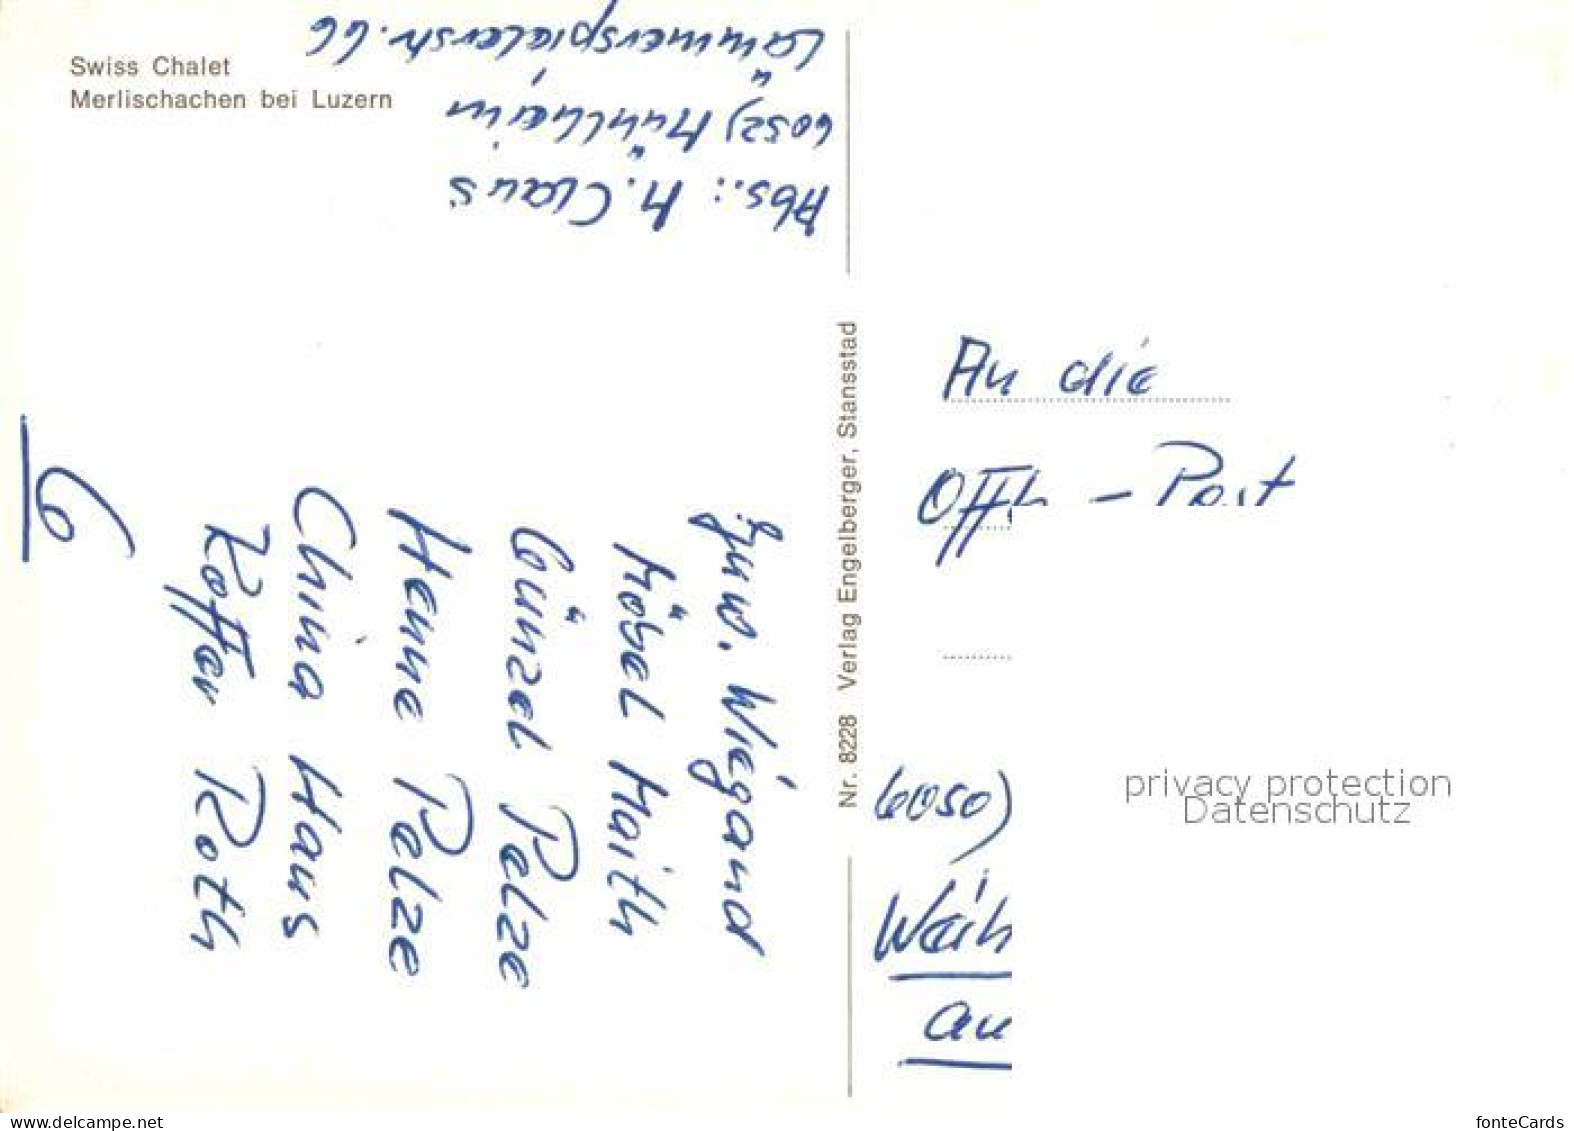 Swiss Chalet
Merlischachen bei Luzern
Abs.: M. Claus
6052) Mühlheim
Lämmerspielerstr. 66
Juw. Wiegand
Möbel Maith
Günzel Pelze
Henne Pelze
China Haus
Koffer Roth
6
Nr. 8228 Verlag Engelberger, Stansstad
An die
Offb - Post
6050)
Weih
an
privacy protection
Datenschutz
www.delcampe.net
fonteCards